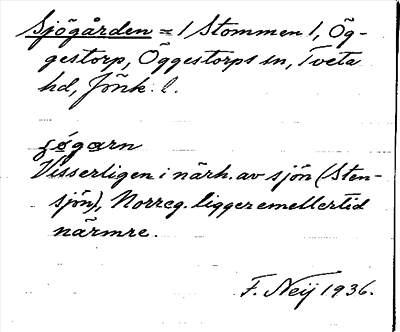 Sjögården = 1 Stommen 1, Ög-
gestorp, Öggestorps sn, Tveta
hd, Jönk. l.
ʃøgarn
Visserligen i närh. av sjön (Sten-
sjön), Norreg. ligger emellertid
närmre.
F. Neij 1936.